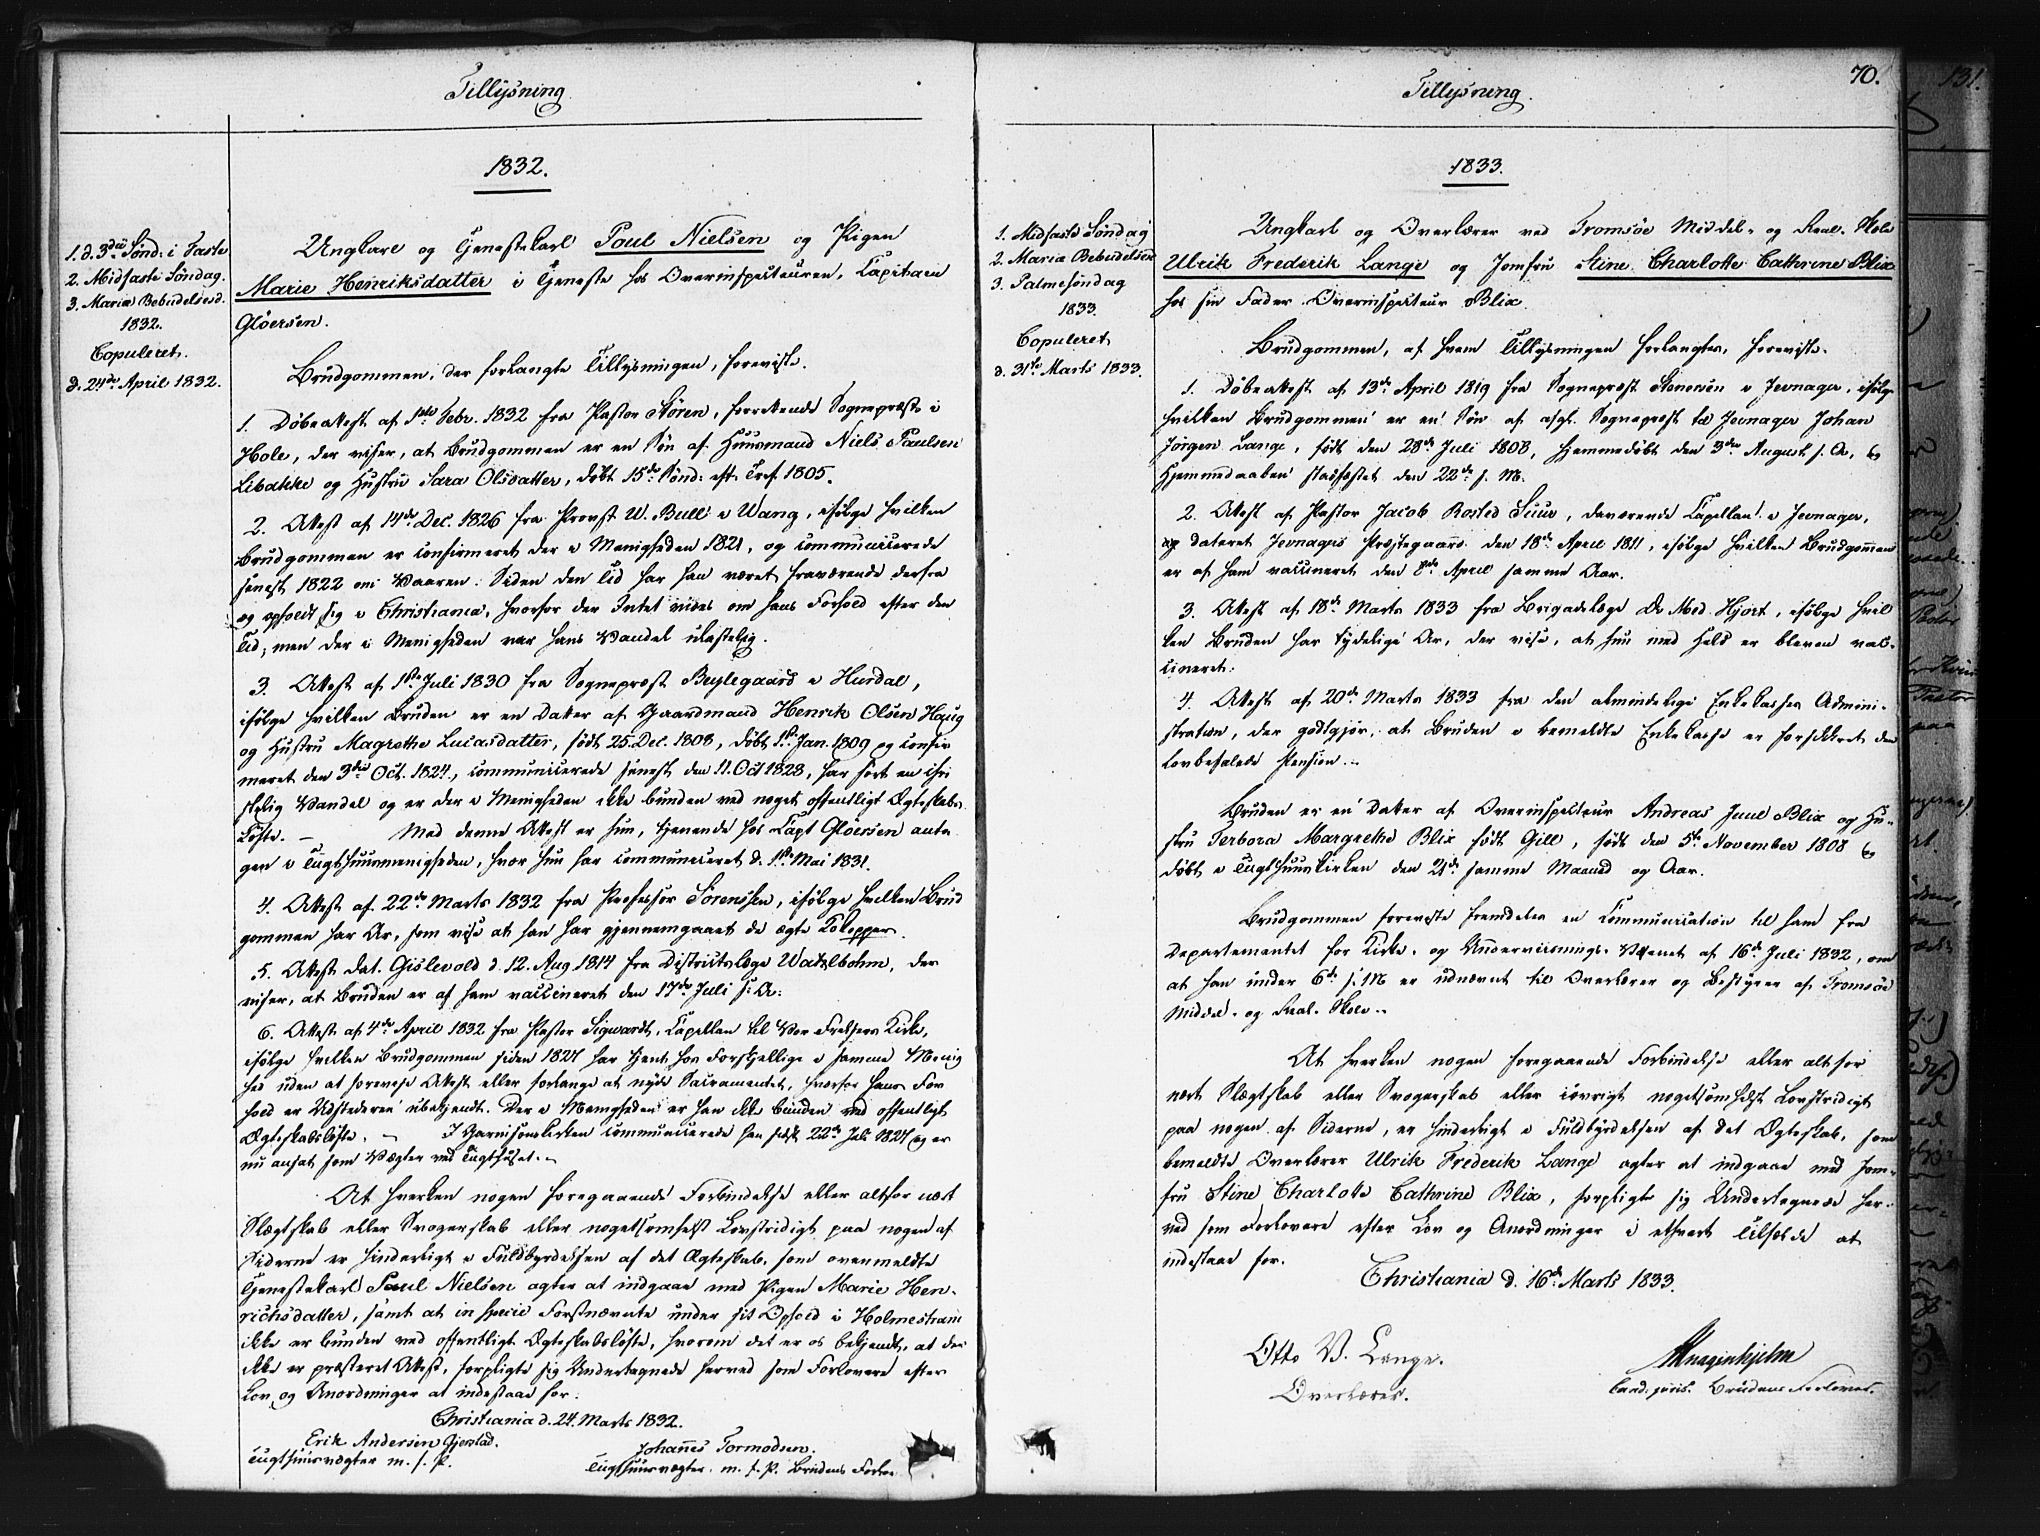 Tillysning
1832.
1. d. 3die Sönd: i Faste
2. Midfaste Söndag.
3. Mariæ Bebudelsesd.
1832.
Copuleret.
d. 24de April 1832.
Ungkarl og Tjenestekarl Poul Nielsen og Pigen
Marie Henriksdatter i Tjeneste hos Overinspecteuren, Capitain
Glöersen.
Brudgommen, der forlangte Tillysningen, foreviste.
1. Döbeattest af 1ste Febr. 1832 fra Pastor Stören, forrettende Sognepræst i
Hole, der viser, at Brudgommen er en Sön af Huusmand Niels Paulsen
Libakke og Hustru Sara Olsdatter, döbt 15de Sönd: eft. Tref. 1805.
2. Attest af 14de Dec. 1826 fra Provst W. Bull i Wang, ifölge hvilken
Brudgommen er confirmeret der i Menigheden 1821, og communicerede
senest 1822 om Vaaren. Siden den Tid har han været fraværende derfra
og opholdt sig i Christiania, hvorfor der Intet vides om hans Forhold efter den
Tid, men der i Menigheden var hans Vandel ulastelig.
3. Attest af 1ste Juli 1830 fra Sognepræst Beylegaard i Hurdal,
ifölge hvilken Bruden er en Datter af Gaardmand Henrik Olsen Haug
og Hustru Magrethe Lucasdatter, födt 25. Dec. 1808, döbt 1ste Jan. 1809 og confir
meret den 3die Oct. 1824, communicerede senest den 11. Oct 1828, har fört en chri
stelig Vandel og er der i Menigheden ikke bunden ved noget offentligt Ægteskabs
Löfte. – Med denne Attest er hun, tjenende hos Capt Glöersen anta
gen i Tugthuusmenigheden, hvor hun har communiceret d. 1ste Mai 1831.
4. Attest af 22de Marts 1832 fra Professor Sörenssen, ifölge hvilken Brud
gommen har Ar, som vise at han har gjennemgaaet de ægte Kokopper.
5. Attest dat. Gislevold d. 12. Aug 1814 fra Districtslæge Wattelbohm, der
viser, at Bruden er af ham vaccineret den 17de Juli s: A:
6. Attest af 4de April 1832 fra Pastor Sigwardt, Capellan til Vor Frelsers Kirke,
ifölge hvilken Brudgommen siden 1827 har tjent hos Forskjellige i samme Menig
hed uden at forevise Attest eller forlange at nyde Sacramentet, hvorfor hans For
hold er Udstederen ubekjendt. Der i Menigheden er han ikke bunden ved offentligt
Ægteskabslöfte. – I Garnisonskirken communicerede han sidst 22de Juli 1827 og er
nu ansat som Vægter ved Tugthuset. –
At hverken nogen foregaaende Forbindelse eller altfor nært
Slægtskab eller Svogerskab eller nogetsomhelst Lovstridigt paa nogen af
Siderne er hinderligt i Fuldbyrdelsen af det Ægteskab, som ovenmeldte
Tjenestekarl Paul Nielsen agter at indgaae med Pigen Marie Hen-
richsdatter, samt at in specie Förstnævnte under sit Ophold i Holmestrand
ikke er bunden ved offentligt Ægteskabslöfte, hvorom det er os bekjendt, at der
ikke er præsteret Attest, forpligte sig Undertegnede herved som Forlovere efter
Lov og Anordninger at indestaae for.
Christiania d. 24. Marts 1832.
Erik Andersen Gjerstad.
Tugthuusvægter m. f. P.
Johannes Tormodsen.
Tugthuusvægter. m. f. P. Brudens Forlov
70.
Tillysning.
1833.
1. Midfaste Söndag
2. Mariæ Bebudelsesd
3. Palmesöndag
1833.
Copuleret
d. 31te Marts 1833.
Ungkarl og Overlærer ved Tromsöe Middel- og Real-Skole
Ulrik Frederik Lange og Jomfru Stine Charlotte Cathrine Blix
hos sin Fader Overinspecteur Blix.
Brudgommen, af hvem Tillysningen forlangtes, foreviste.
1. Döbeattest af 13de April 1819 fra Sognepræst Stenersen i Jevnager, ifölge
hvilken Brudgommen er en Sön af afgl. Sognepræst til Jevnager Johan
Jörgen Lange, födt den 28de Juli 1808, hjemmedöbt den 3die August s. A. og
Hjemmedaaben stadfæstet den 22de s. M.
2. Attest af Pastor Jacob Rosted Suur, daværende Capellan i Jevnager,
og dateret Jevnagers Præstegaard den 18de April 1811, ifölge hvilken Brudgommen
er af ham vaccineret den 8de April samme Aar.
3. Attest af 18de Marts 1833 fra Brigadelæge Dr Med. Hjort, ifölge hvil
ken Bruden har tydelige Ar, der vise, at hun med Held er bleven vac-
cineret.
4. Attest af 20de Marts 1833 fra den almindelige Enkekasses Admini-
stration, der godtgjör, at Bruden i bemeldte Enkekasse er forsikkret den
lovbefalede Pension. –
Bruden er en Datter af Overinspecteur Andreas Juul Blix og Hu-
stru Terbora Margrethe Blix födt Gill, födt den 5te November 1808 og
döbt i Tugthuuskirken den 21de samme Maaned og Aar.
Brudgommen foreviste fremdeles en Communication til ham fra
Departementet for Kirke- og Underviisnings-Væsenet af 16de Juli 1832, om
at han under 6te s. M er udnævnt til Overlærer og Bestyrer af Tromsöe
Middel- og Real-Skole. –
At hverken nogen foregaaende Forbindelse eller altfor
nært Slægtskab eller Svogerskab eller iövrigt nogetsomhelst Lovstridigt
paa nogen af Siderne, er hinderligt i Fuldbyrdelsen af det Ægteskab, som
bemeldte Overlærer Ulrik Frederik Lange agter at indgaae med Jom-
fru Stine Charlotte Cathrine Blix, forpligte sig Undertegnede her-
ved som Forlovere efter Lov og Anordninger i ethvert Tilfælde at
indestaae for.
Christiania d. 16de Marts 1833.
Otto V. Lange.
Overlærer.
Munginhjelm
Cand. juris. Brudens Forlover.
131.